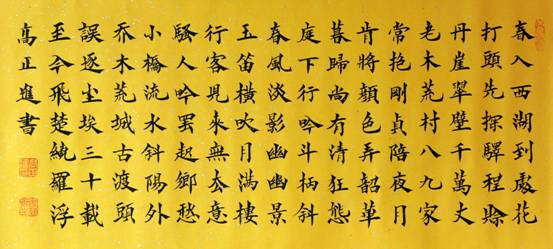 春入西湖到處花
打頭先探驛程賒
丹崖翠壁千萬丈
老木荒村八九家
常抱剛貞陪夜月
肯將顏色弄韶華
暮歸尚有清狂態
庭下行吟斗柄斜
春風淡影幽幽景
玉笛橫吹月滿樓
行客見來無去意
騷人吟罢起鄉愁
小橋流水斜陽外
乔木荒城古渡頭
誤逐尘埃三十載
至今飛楚繞羅浮
髙正進書